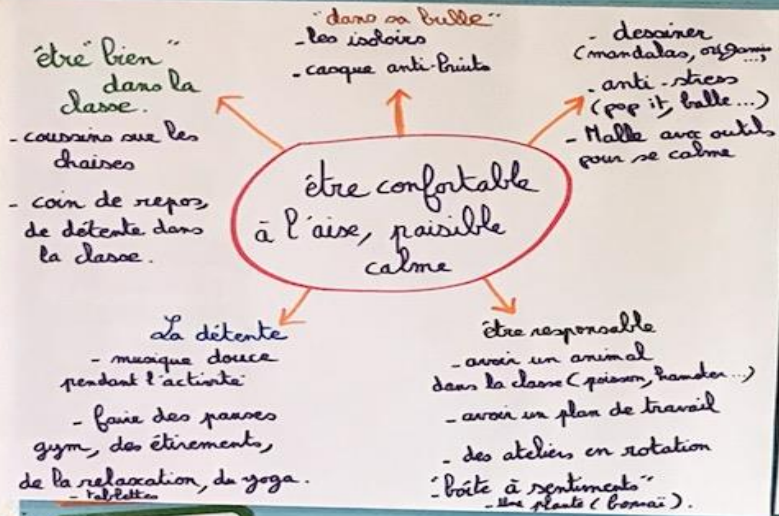 être "bien"
dans la
classe.
- coussins sur les
chaises
- coin de repos,
de détente dans
la classe.
"dans sa bulle"
- les isoloirs
- casque anti-bruits
- dessiner
(mandalas, origamis ...)
- anti-stress
(pop it, balle...)
- Malle avec outils
pour se calme
être confortable
à l'aise, paisible
calme
La détente
- musique douce
pendant l'activité
- faire des pauses
gym, des étirements,
de la relaxation, du yoga.
- tablettes
être responsable
- avoir un animal
dans la classe (poisson, hamster...)
- avoir un plan de travail
- des ateliers en rotation
- "boîte à sentiments"
- une plante (bonzaï).